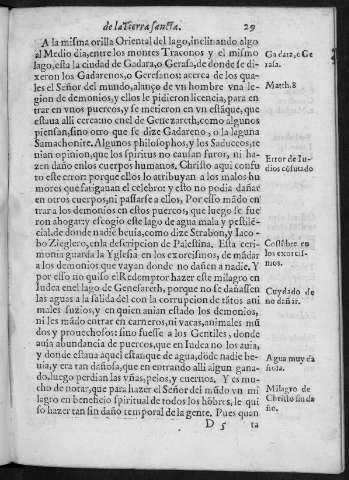 de la Tierra sancta. 29
A la misma orilla Oriental del lago, inclinando algo
al Medio dia, entre los montes Traconos y el mismo
lago, esta la ciudad de Gadara, o Gerasa, de donde se di-
xeron los Gadarenos, o Gerasenos: acerca de los qua-
les el Señor del mundo, alanço de vn hombre vna le-
gion de demonios, y ellos le pidieron licencia, para en-
trar en vnos puercos, y se metieron en vn estãque, que
estaua alli cercano en el de Genezareth, como algunos
piensan, sino otro que se dize Gadareno, o la laguna
Samachonite. Algunos philosophos, y los Saduceos, te
nian opinion, que los spiritus no causan furor, ni ha-
zen daño en los cuerpos humanos. Christo aqui confu
to este error: porque ellos lo atribuyan a los malos hu
mores que fatigauan el celebro: y esto no podia dañar
en otros cuerpos, ni passarse a ellos, Por esso mãdo en
trar a los demonios en estos puercos, que luego se fue
ron ahogar: y escogio este lago de agua mala y pestilẽ-
cial, de donde nadie beuia, como dize Strabon, y Iaco-
bo Zieglero, en la descripcion de Palestina. Esta ceri-
monia guarda la Yglesia en los exorcismos, de mãdar
a los demonios que vayan donde no dañen a nadie. Y
por esso no quiso el Redemptor hazer este milagro en
Iudea en el lago de Genesareth, porque no se dañassen
las aguas a la salida del con la corrupcion de tãtos ani
males suzios, y en quien auian estado los demonios,
ni les mãdo entrar en carneros, ni vacas, animales mũ
dos y prouechosos: sino fuesse a los Gentiles, donde
auia abundancia de puercos, que en Iudea no los auia,
y donde estaua aquel estanque de agua, dõde nadie be-
uia, y era tan dañosa, que en entrando alli algun gana-
do, luego perdian las vñas, pelos, y cuernos. Y es mu-
cho de notar, que para hazer el Señor del mũdo vn mi
lagro en beneficio spiritual de todos los hõbres, le qui
so hazer tan sin daño temporal de la gente. Pues quan
D 5 ta
Gadara, o Ge
rasa.
Matth. 8
Error de Iu-
dios cõfutado
Costũbre en
los exorcis-
mos.
Cuydado de
no dañar.
Agua muy da
ñosa.
Milagro de
Christo sin da
ño.